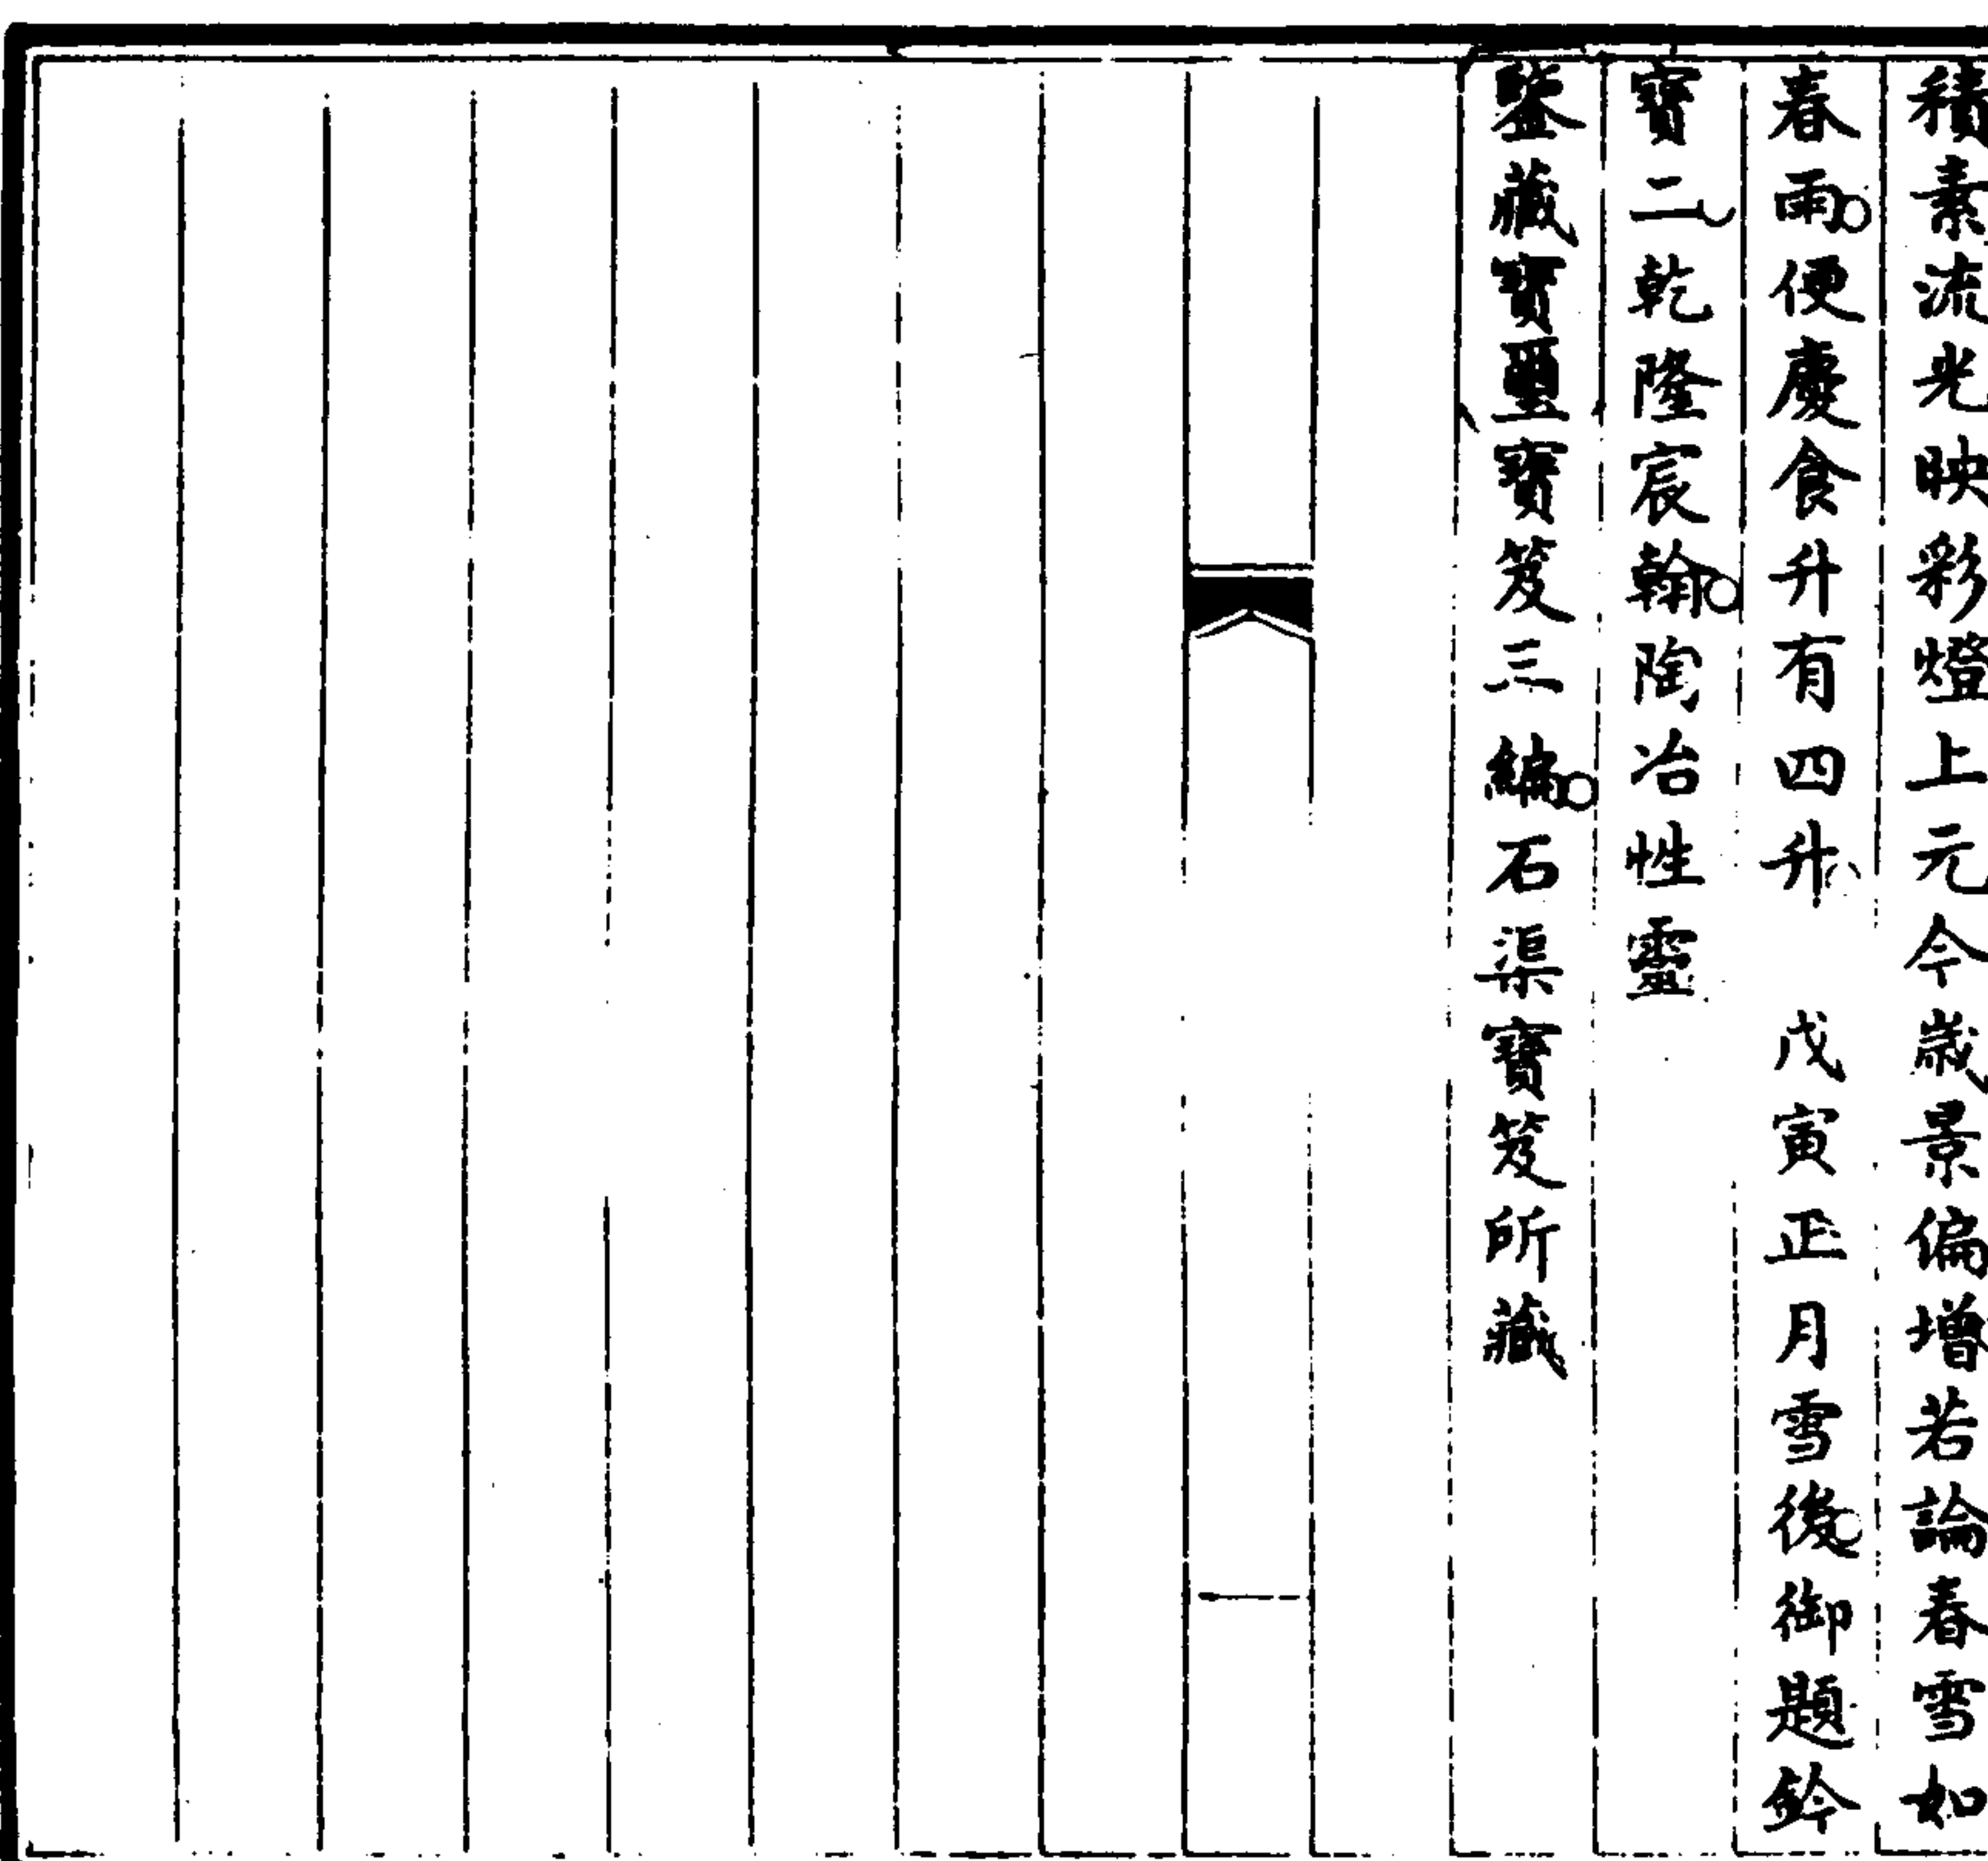 積素流光映彩燈上元今歲景偏增若論春雪如
春雨便慶食升有四升　戊寅正月雪後御題鈐
寶二乾隆宸翰陶冶性靈
鑒藏寶璽寶笈三編石渠寶笈所藏